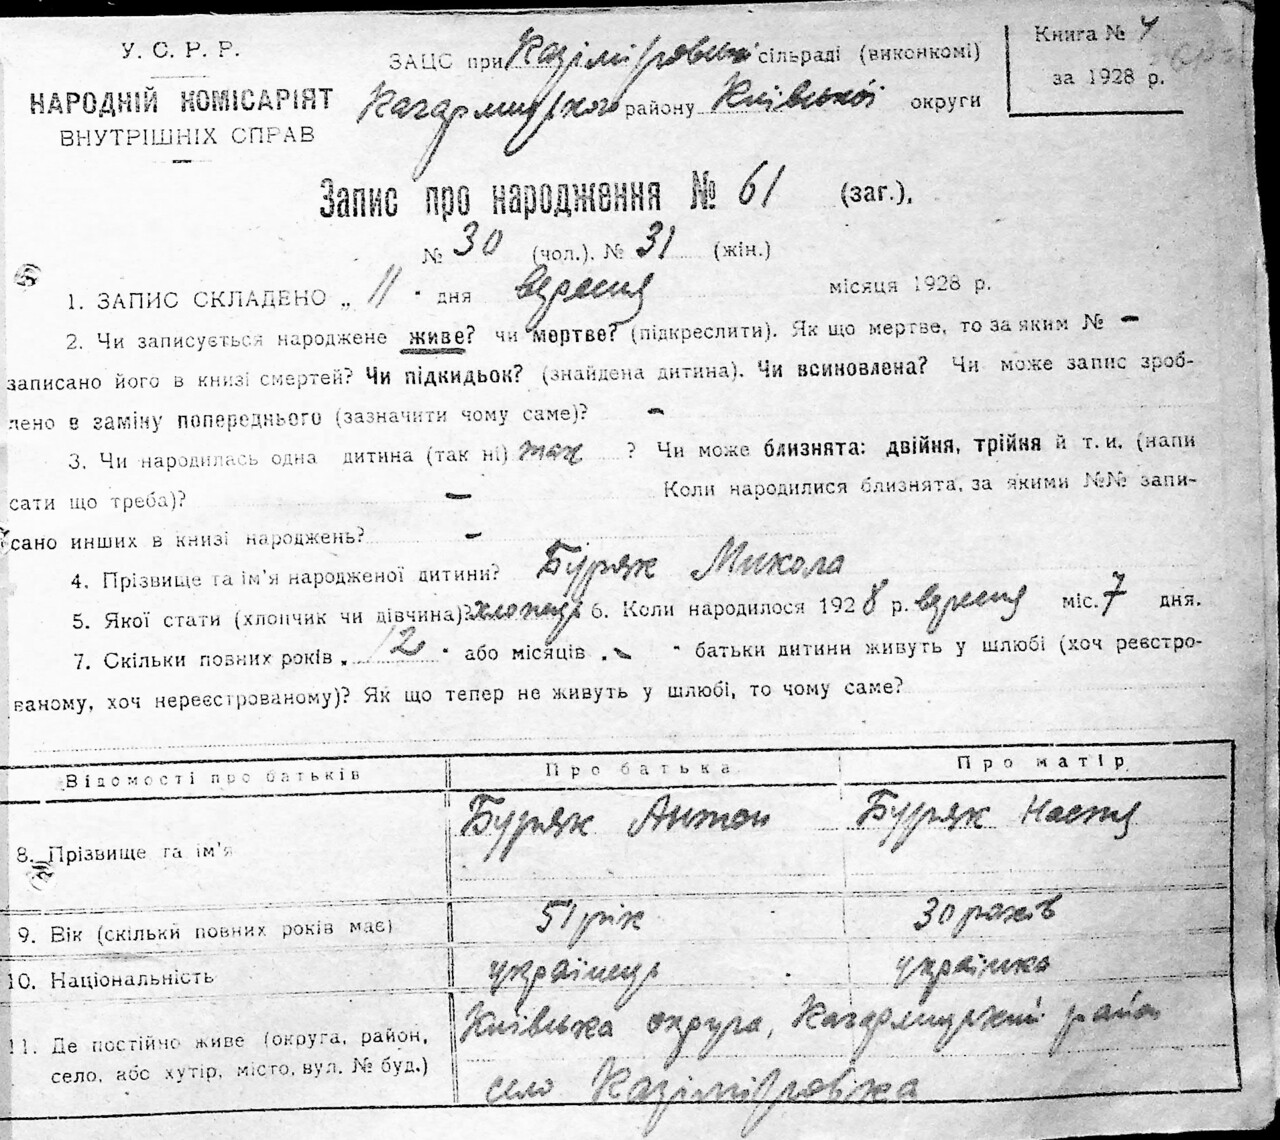 У. С. Р. Р.
НАРОДНІЙ КОМІСАРІЯТ
ВНУТРІШНІХ СПРАВ
ЗАЦС при Казіміровській сільраді (виконкомі)
Кагарлицького району Київської округи
Книга № 4
за 1928 р.
Запис про народження № 61 (заг.),
№ 30 (чол.). № 31 (жін.)
1. ЗАПИС СКЛАДЕНО „ 11 " дня вересня місяця 1928 р.
2. Чи записується народжене живе? чи мертве? (підкреслити). Як що мертве, то за яким № –
записано його в книзі смертей? Чи підкидьок? (знайдена дитина). Чи всиновлена? Чи може запис зроб-
лено в заміну попереднього (зазначити чому саме)? –
3. Чи народилась одна дитина (так ні) так ? Чи може близнята: двійня, трійня й т. и. (напи
сати що треба)? – Коли народилися близнята, за якими №№ запи-
сано инших в книзі народжень? –
4. Прізвище та ім'я народженої дитини? Буряк Микола
5. Якої стати (хлопчик чи дівчина)? хлопець 6. Коли народилося 1928 р. вересня міс. 7 дня.
7. Скільки повних років „ 12 " або місяців „ - " батьки дитини живуть у шлюбі (хоч реєстро-
ваному, хоч нереєстрованому)? Як що тепер не живуть у шлюбі, то чому саме?
Відомості про батьків Про батька Про матір
8. Прізвище та ім'я Буряк Антон Буряк Настя
9. Вік (скільки повних років має) 51 рік 30 років
10. Національність українець українка
11. Де постійно живе (округа, район, Київська округа, Кагарлицький район
село, або хутір, місто, вул. № буд.) село Казімировка